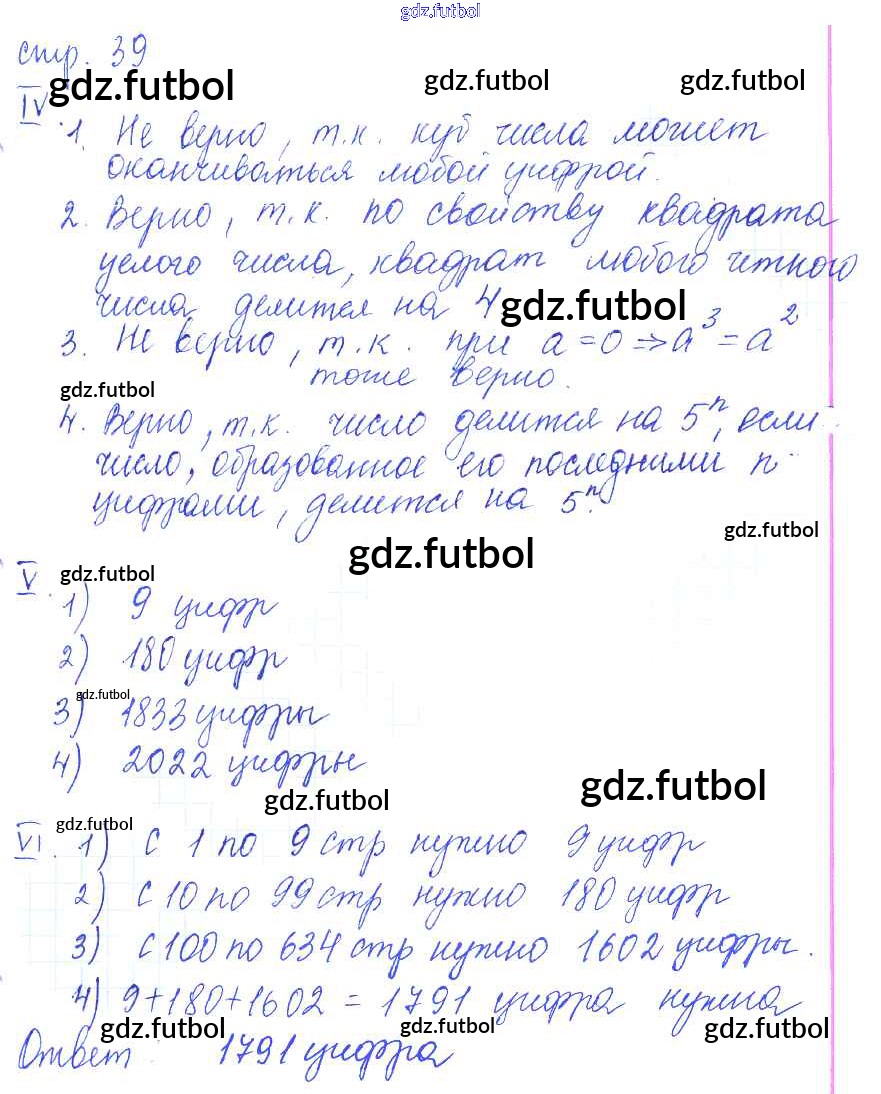 gdz.futbol
стр. 39
gdz.futbol gdz.futbol gdz.futbol
IV
1. Не верно, т.к. куб числа может
оканчиваться любой цифрой.
2. Верно, т.к. по свойству квадрата
целого числа, квадрат любого четного
числа делится на 4
gdz.futbol
3. Не верно, т.к. при a=0 => a³=a²
тоже верно.
gdz.futbol
4. Верно, т.к. число делится на 5ⁿ, если
число, образованное его последними n
цифрами, делится на 5ⁿ.
gdz.futbol
gdz.futbol
V. gdz.futbol
1) 9 цифр
2) 180 цифр
gdz.futbol
3) 1833 цифры
4) 2022 цифры
gdz.futbol gdz.futbol
gdz.futbol
VI. 1) С 1 по 9 стр нужно 9 цифр
2) С 10 по 99 стр нужно 180 цифр
3) С 100 по 634 стр нужно 1602 цифры.
4) 9+180+1602 = 1791 цифра нужна
gdz.futbol gdz.futbol gdz.futbol
Ответ: 1791 цифра